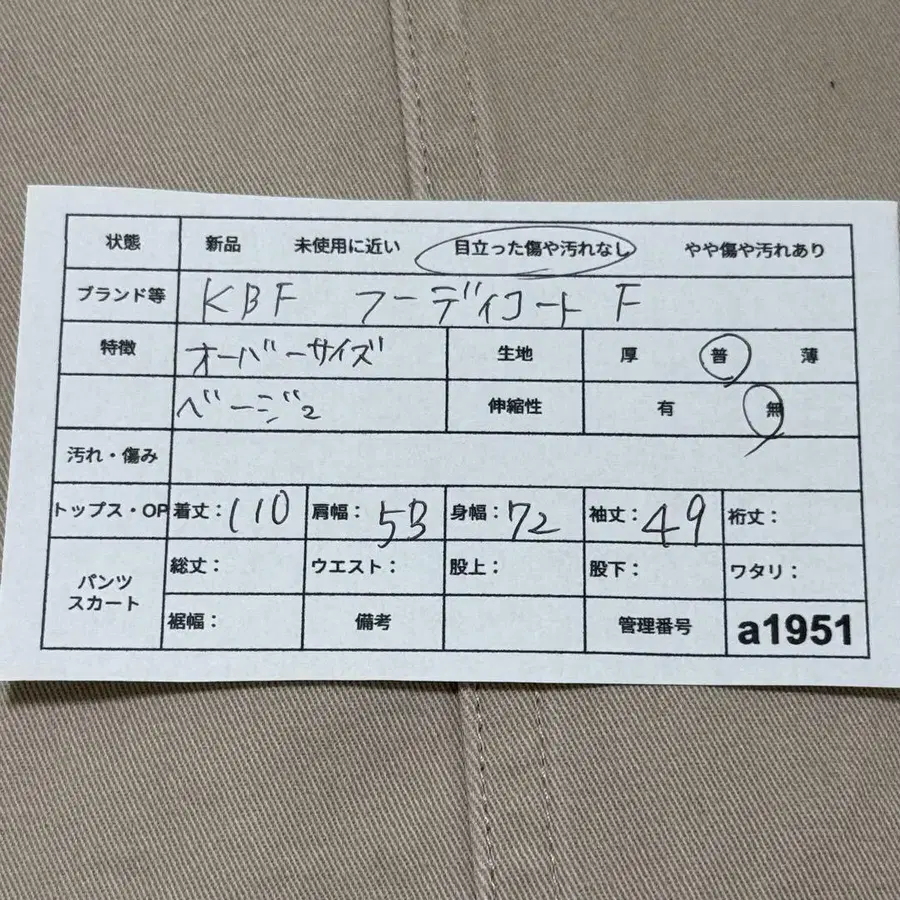 状態 新品 未使用に近い 目立った傷や汚れなし やや傷や汚れあり
ブランド等 KBF フーディコート F
特徴 オーバーサイズ 生地 厚 普 薄
ベージュ 伸縮性 有 無
汚れ・傷み
トップス・OP 着丈：110 肩幅：53 身幅：72 袖丈：49 裄丈：
パンツ スカート 総丈： ウエスト： 股上： 股下： ワタリ：
裾幅： 備考 管理番号 a1951